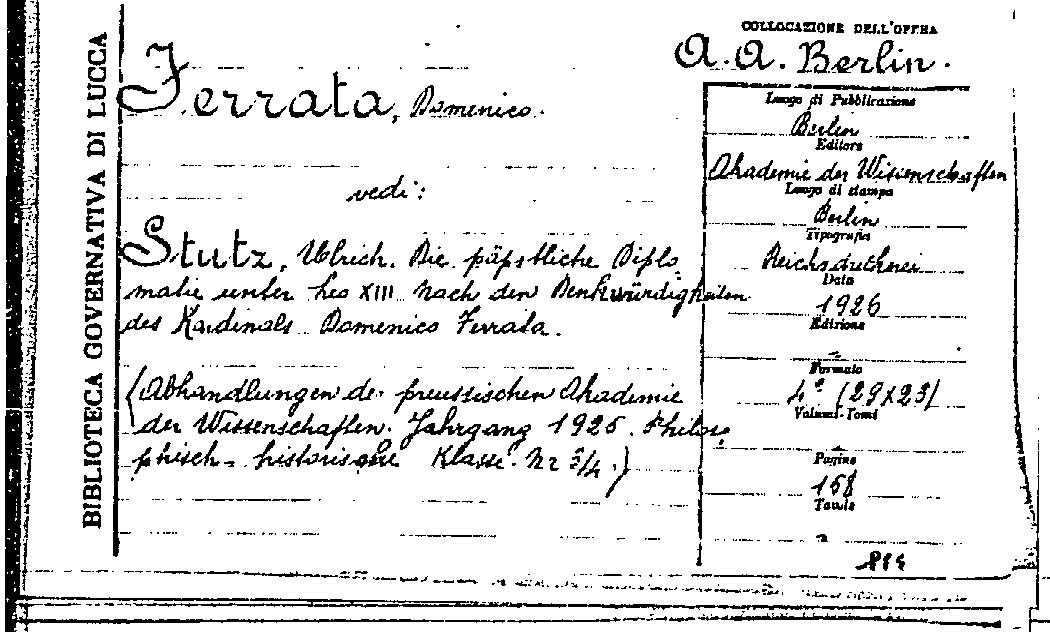 BIBLIOTECA GOVERNATIVA DI LUCCA
COLLOCAZIONE DELL'OPERA
A. A. Berlin.
Ferrata, Domenico.
vedi:
Stutz, Ulrich. Die päpstliche Diplo
matie unter Leo XIII nach den Denkwürdigkeiten
des Kardinals Domenico Ferrata.
(Abhandlungen der preussischen Akademie
der Wissenschaften. Jahrgang 1925. Philoso
phisch-historische Klasse. Nr 3/4.)
Luogo di Pubblicazione
Berlin
Editore
Akademie der Wissenschaften
Luogo di stampa
Berlin
Tipografia
Reichsdruckerei
Data
1926
Edizione
-
Formato
4° (29x23)
Volumi-Tomi
Pagine
158
Tavole